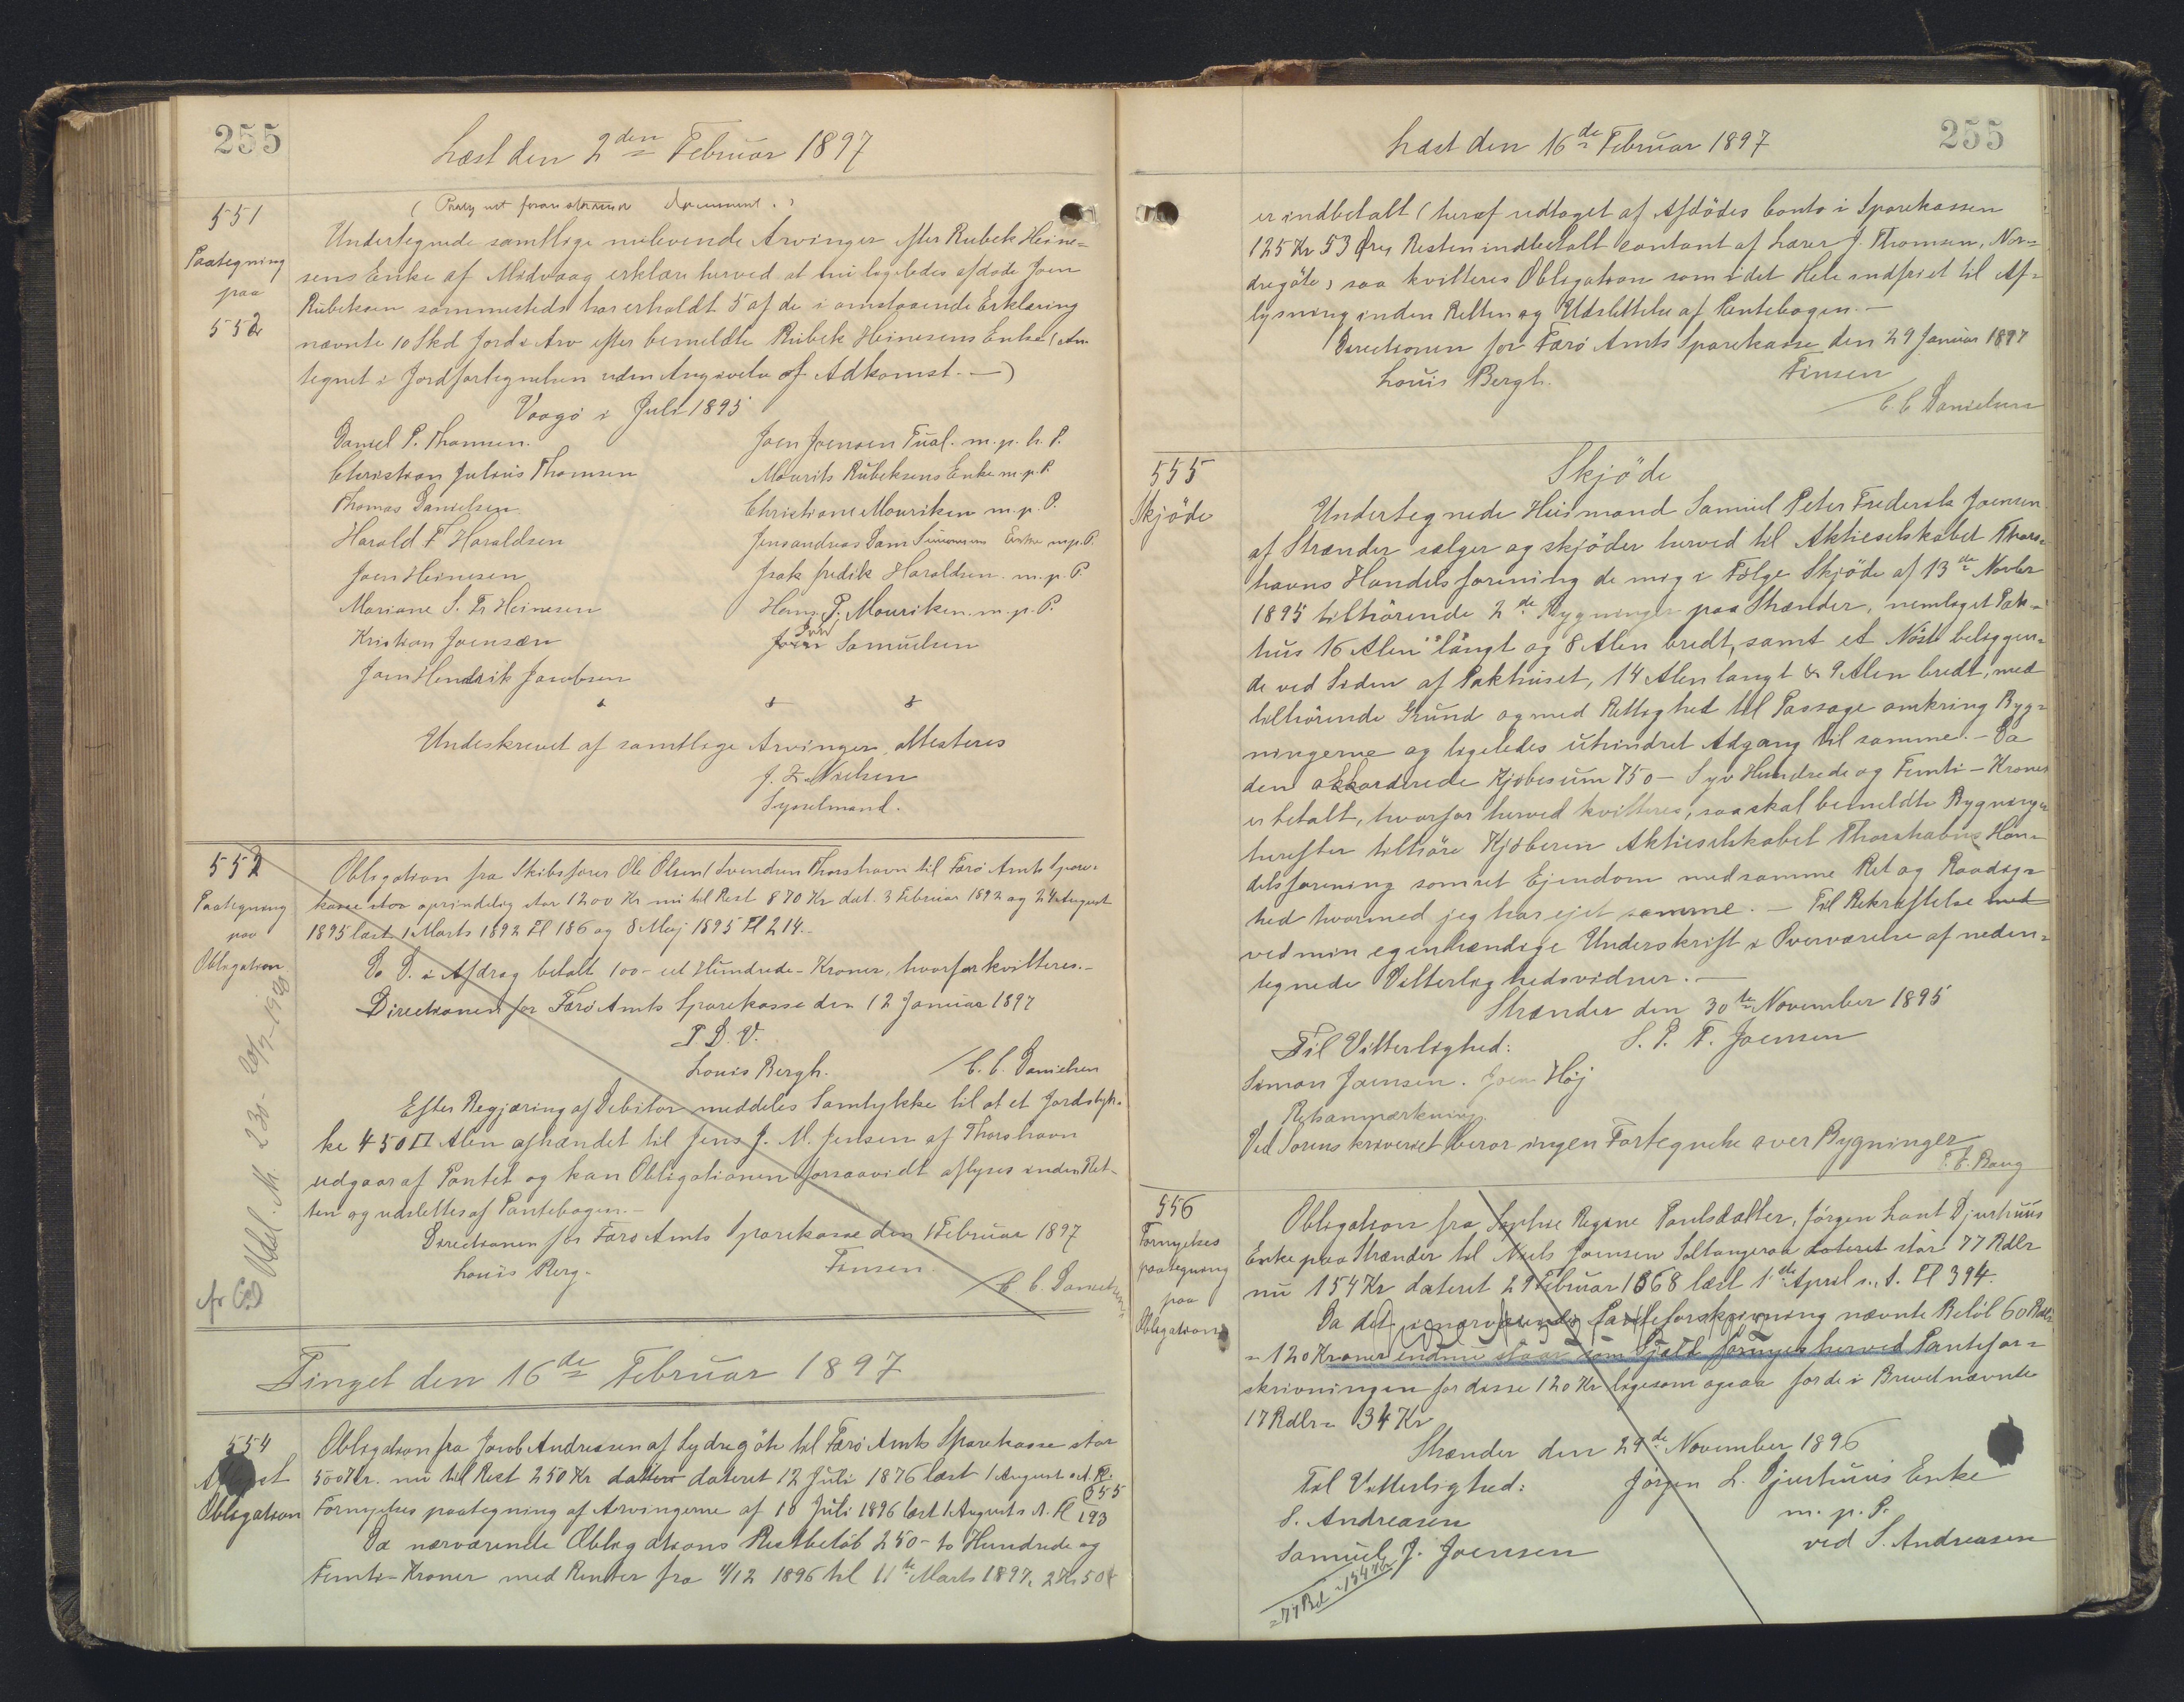 255
Læst den 2den Februar 1897
551
Paategning
paa
552
Undertegnede samtlige nulevende Arvinger efter Rubek Heine=
sens Enke af Midvaag erklære herved at ligeledes afdøde Joen
Rubeksen sammesteds har erholdt 5 af de i omstaaende Erklæring
nævnte 10 Skd Jord i Arv efter bemeldte Rubek Heinesens Enke (An
tegnet i Jordfortegnelsen uden Angivelse af Adkomst. —)
Vaagö i Juli 1895
Daniel P. Thomsen. Joen Joensen Tual. m. p. h. P.
Christian Julius Thomsen Mourits Rubeksens Enke m. p. P.
Thomas Danielsen Christiane Mouriken m. p. P.
Harald F Haraldsen Jensandreas Dam Simonsens Enke m.p.P.
Joen Heinesen Isak fredik Haraldsen. m. p. P.
Mariane S. Fr Heinesen Hans P. Mouriken. m. p. P.
Kristian Joensæn Samuelsen
Joen Hendrik Jacobsen
Undeskrevet af samtlige Arvinger, attesteres
J. Z. Nielsen
Sysselmand.
552
Paategning
paa
Obligation
Obligation fra Skibsfører Ole Olsen Svendsen Thorshavn til Færö Amts Spare=
kasse stor oprindelig stor 1200 Kr nu til Rest 870 Kr dat. 3 Februar 1892 og 24 August
1895 læst 1 Marts 1892 Fl 186 og 8 Maj 1895 Fl 214. –
D. D. i Afdrag betalt 100 – et Hundrede – Kroner, hvorfor kvitteres. –
Directionen for Færö Amts Sparekasse den 12 Januar 1897
T. D. V.
Louis Bergh. C. C. Danielsen
Efter Begjæring af Debitor meddeles Samtykke til at et Jordstyk=
ke 450 □ Alen afhændet til Jens J. M. Jensen af Thorshavn
udgaar af Pantet og kan Obligationen forsaavidt aflyses inden Ret=
ten og udslettes af Pantebogen. –
Directionen for Færö Amts Sparekasse den 1 Februar 1897
Louis Berg. Finsen.
C. C. Danielsen
Udsl. M. 230 -
Tinget den 16de Februar 1897
554
Obligation
Obligation fra Jacob Andreasen af Sydregöte til Færö Amts Sparekasse stor
500 Kr. nu til Rest 250 Kr dateret 12 Juli 1876 læst 1 August s. A. Fl.
655
Fornyelses paategning af Arvingerne af 18 Juli 1896 læst 1 August s. A. Fl 193
Da nærværende Obligations Restbelöb 250 – to Hundrede og
Femti – Kroner med Renter fra 11/12 1896 til 11te Marts 1897, 2 Kr 50
Læst den 16de Februar 1897
255
er indbetalt (heraf udtaget af Afdödes Conto i Sparekassen
125 Kr 53 Öre, Resten indbetalt contant af Lærer J. Thomsen, Nor=
dregöte) saa kvitteres Obligation som i det Hele indfriet til Af=
lysning inden Retten og Udslettelse af Pantebogen. –
Directionen for Færö Amts Sparekasse den 29 Januar 1897
Louis Bergh. Finsen
C. C. Danielsen
555
Skjöde
Skjöde
Undertegnede Huusmand Samuel Peter Frederik Joensen
af Strænder sælger og skjöder herved til Aktieselskabet Thors=
havns Handelsforening de mig i Fölge Skjöde af 13de Novbr
1895 tilhörende 2de Bygninger paa Strænder, nemlig et Pak=
hus 16 Alen langt og 8 Alen bredt, samt et Nöst beliggen=
de ved Siden af Pakhuset, 14 Alen langt & 9 Alen bredt, med
tilhörende Grund og med Rettighed til Passage omkring Byg=
ningerne og ligeledes uhindret Adgang til samme. – Da
den akkorderede Kjöbesum 750 – Syv Hundrede og Femti – Kroner
er betalt, hvorfor herved kvitteres, saa skal bemeldte Bygninger
herefter tilhöre Kjöberen Aktieselskabet Thorshavns Han=
delsforening som ret Ejendom med samme Ret og Raadig=
hed hvormed jeg har ejet samme. – Til Bekræftelse med
ved min egenhændige Underskrift i Overværelse af neden=
tegnede Vitterlighedsvidner. –
Strænder den 30te November 1895
Til Vitterlighed: S. P. F. Joensen
Simon Joensen. Joen Höj
Retsanmærkning.
Ved Sorenskriveriet beror ingen Fortegnelse over Bygninger
C. F. Bang
556
Fornyelses
paategning
paa
Obligation
Obligation fra Sophie Regine Poulsdatter, Jörgen Lant Djurhuus
Enke paa Strænder til Niels Joensen Saltangeraa dateret stor 77 Rdlr
nu 154 Kr dateret 29 Februar 1868 læst 1ste April s. A. Fl 394.
Da det i nærværende Panteforskrivning nævnte Belöb 60 Rdlr
= 120 Kroner endnu staar som Gjæld fornyes herved Pantefor=
skrivningen for disse 120 Kr ligesom ogsaa for de i Brevet nævnte
17 Rdlr = 34 Kr
Strænder den 24de November 1896
Til Vitterlighed: Jörgen L. Djurhuus Enke
S. Andreasen m. p. P.
Samuel J. Joensen ved S. Andreasen
= 77 Rd = 154 Kr